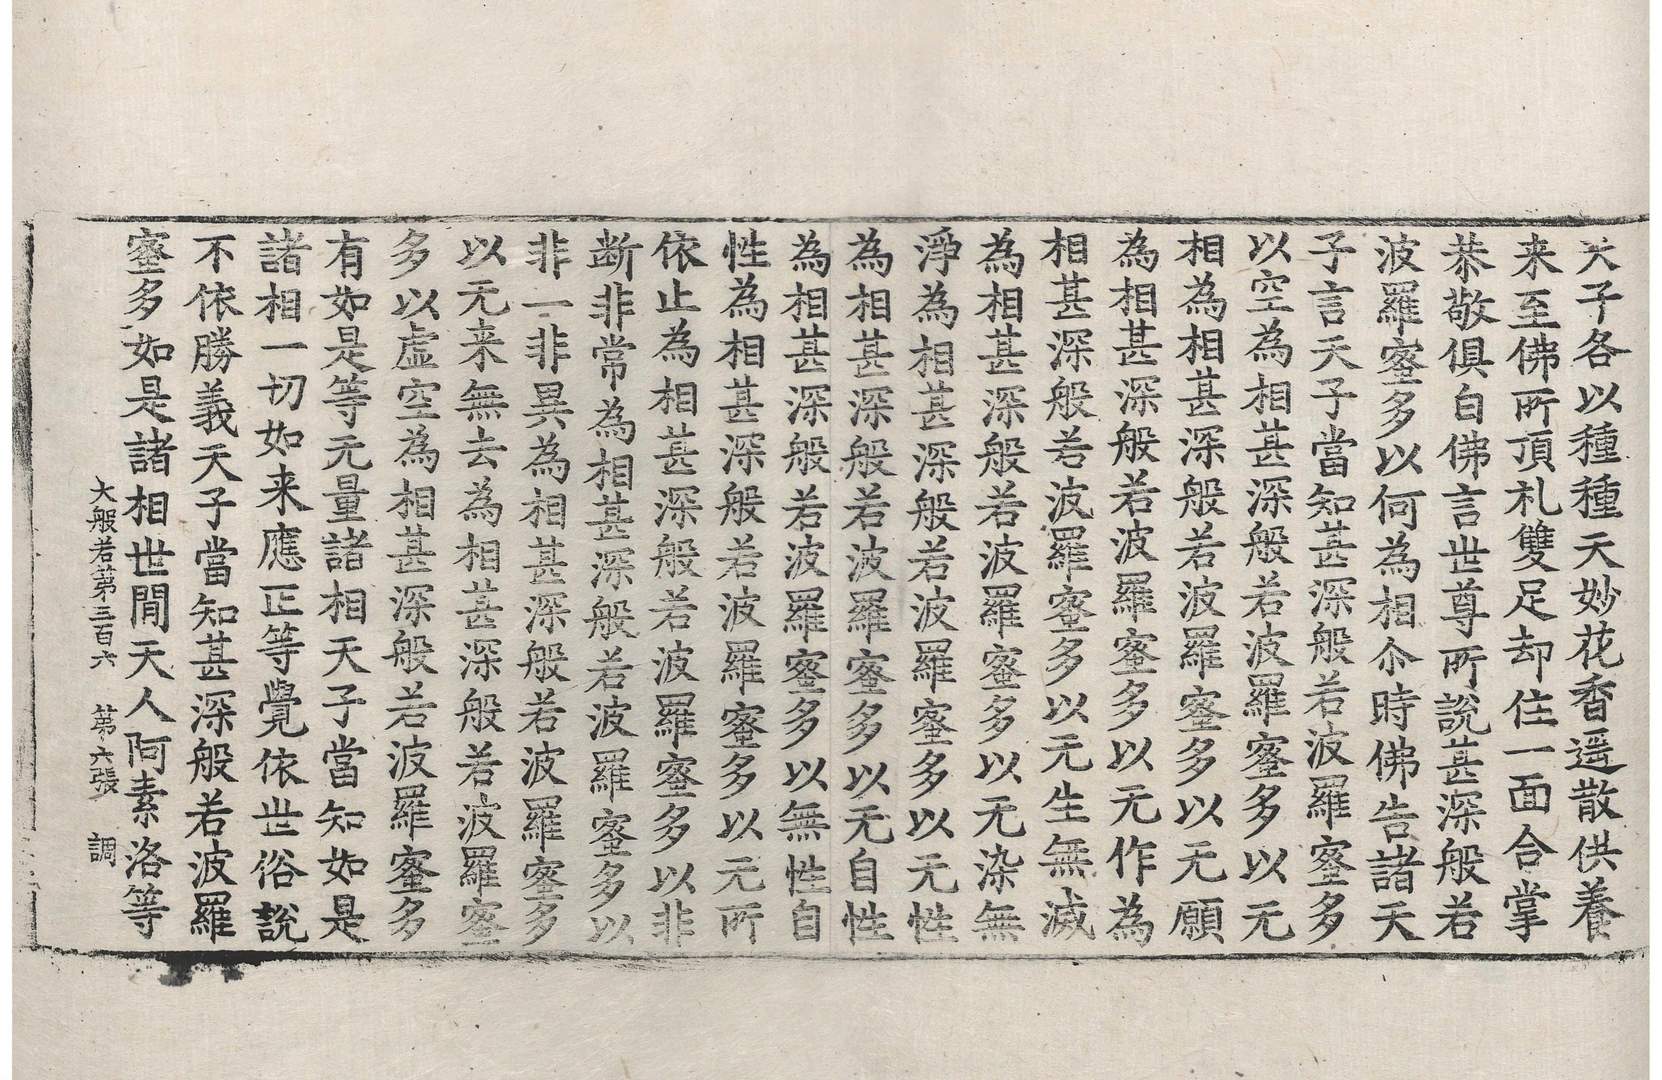 天子各以種種天妙花香遥散供養
来至佛所頂札雙足却住一面合掌
恭敬俱白佛言世尊所說甚深般若
波羅蜜多以何為相尒時佛告諸天
子言天子當知甚深般若波羅蜜多
以空為相甚深般若波羅蜜多以无
相為相甚深般若波羅蜜多以无願
為相甚深般若波羅蜜多以无作為
相甚深般若波羅蜜多以无生無滅
為相甚深般若波羅蜜多以无染無
淨為相甚深般若波羅蜜多以无性
為相甚深般若波羅蜜多以无自性
為相甚深般若波羅蜜多以無性自
性為相甚深般若波羅蜜多以无所
依止為相甚深般若波羅蜜多以非
断非常為相甚深般若波羅蜜多以
非一非異為相甚深般若波羅蜜多
以无来無去為相甚深般若波羅蜜
多以虚空為相甚深般若波羅蜜多
有如是等无量諸相天子當知如是
諸相一切如来應正等覺依世俗說
不依勝義天子當知甚深般若波羅
蜜多如是諸相世間天人阿素洛等
大般若第三百六 第六張 調